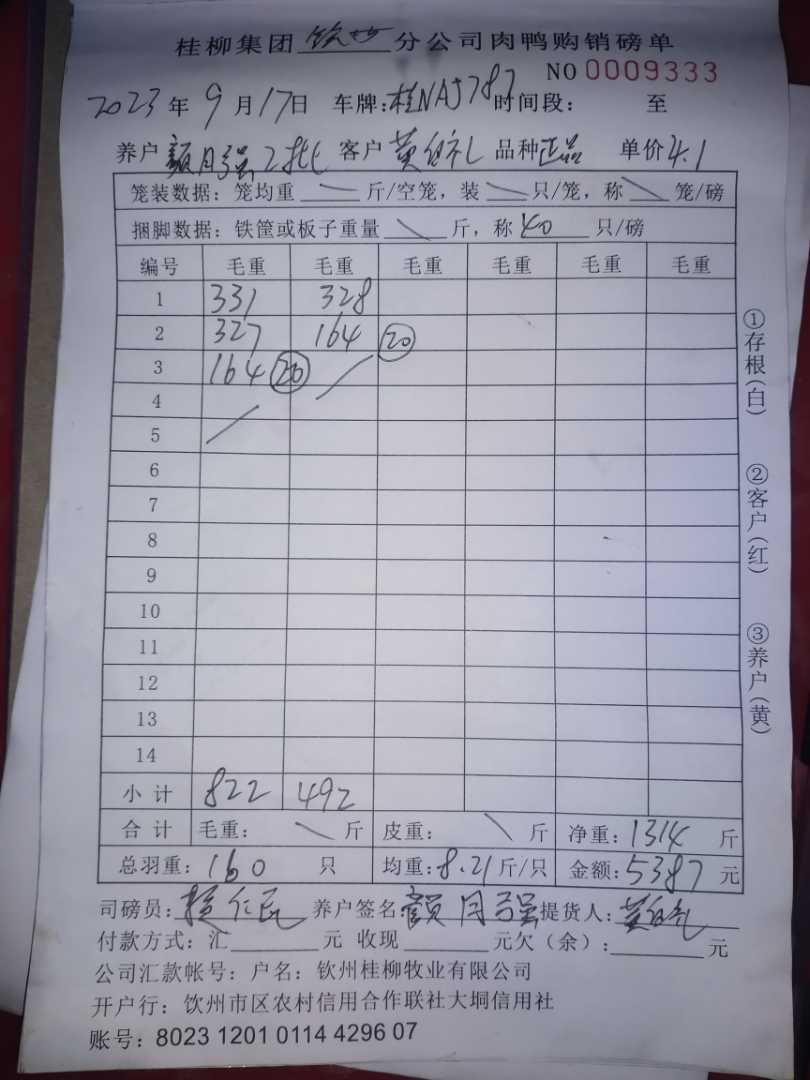 桂柳集团 钦州 分公司肉鸭购销磅单
NO 0009333
2023 年 9 月 17 日 车牌:桂NAJ787 时间段: 至
养户 颜月强2批 客户 黄 礼 品种 正品 单价 4.1
笼装数据:笼均重 \ 斤/空笼,装 \ 只/笼,称 \ 笼/磅
捆脚数据:铁筐或板子重量 \ 斤,称 40 只/磅
编号 毛重 毛重 毛重 毛重 毛重 毛重
1 331 328
2 327 164 ⑳
3 164 ⑳ /
4
5 /
6
7
8
9
10
11
12
13
14
小计 822 492
合计 毛重: \ 斤 皮重: \ 斤 净重:1314 斤
总羽重:160 只 均重:8.21 斤/只 金额:5387 元
司磅员: 仁 养户签名 颜月强 提货人:黄 礼
付款方式:汇 元 收现 元欠(余): 元
公司汇款帐号:户名:钦州桂柳牧业有限公司
开户行:钦州市区农村信用合作联社大垌信用社
账号:8023 1201 0114 4296 07
①存根(白)
②客户(红)
③养户(黄)